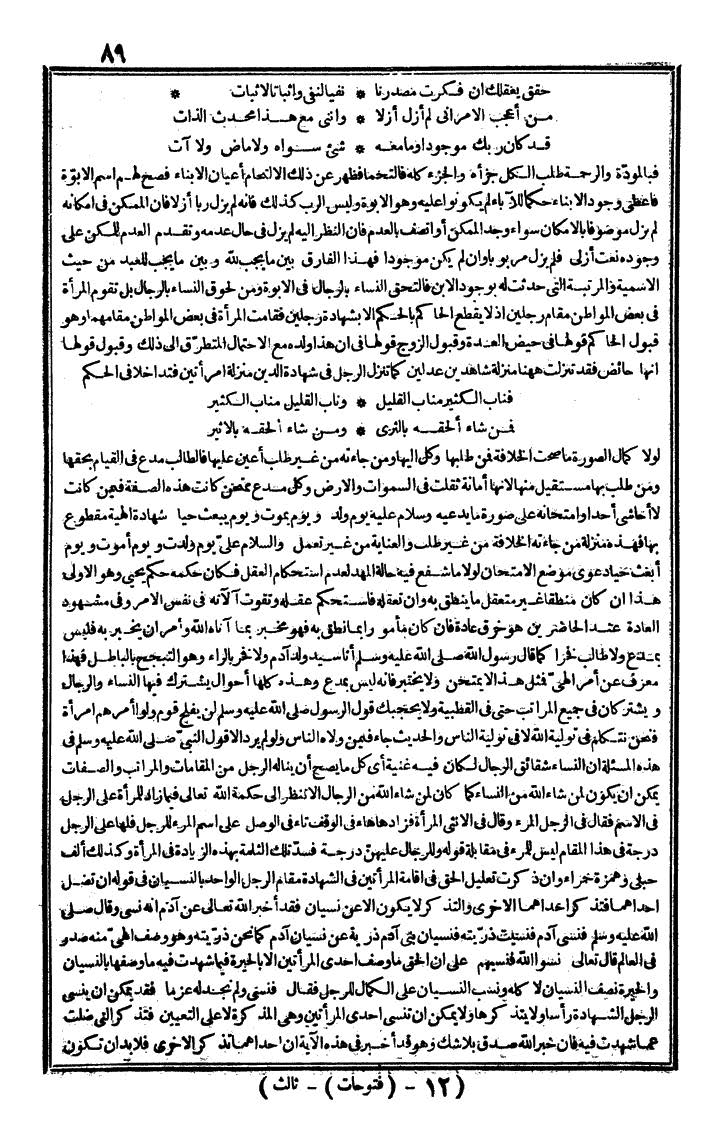 ٨٩
حقق بعقلك ان فكرت مصدرنا * نفيا لنفي واثباتا لاثبات *
من أعجب الامر انى لم أزل أزلا * واننى مع هذا محدث الذات
قد كان ربك موجودا ومامعه * شئ سواه ولا ماض ولا آت
فبالمودّة والرحمة طلب الكل جزأه والجزء كله فالتحما فظهر عن ذلك الالتحام أعيان الابناء فصح لهم اسم الابوّة
فاعطى وجود الابناء حكما للآباء لم يكونوا عليه وهو الابوة وليس الرب كذلك فانه لم يزل ربا أزلا فان الممكن فى امكانه
لم يزل موصوفا بالامكان سواء وجد الممكن أو اتصف بالعدم فان النظر اليه لم يزل فى حال عدمه وتقدم العدم للممكن على
وجوده نعت أزلى فلم يزل مربوبا وان لم يكن موجودا فهذا الفارق بين ما يجب لله وبين ما يجب للعبد من حيث
الاسمية والمرتبة التى حدثت له بوجود الابن فالتحق النساء بالرجال فى الابوة ومن لحوق النساء بالرجال بل تقوم المرأة
فى بعض المواطن مقام رجلين اذ لا يقطع الحاكم بالحكم الا بشهادة رجلين فقامت المرأة فى بعض المواطن مقامهما وهو
قبول الحاكم قولها فى حيض العدة وقبول الزوج قولها فى ان هذا ولده مع الاحتمال المتطرّق الى ذلك وقبول قولها
انها حائض فقد تنزلت ههنا منزلة شاهدين عدلين كما تنزل الرجل فى شهادة الدين منزلة امرأتين فتداخلا فى الحكم
فناب الكثير مناب القليل * وناب القليل مناب الكثير
فمن شاء ألحقه بالثرى * ومن شاء ألحقه بالاثير
لولا كمال الصورة ماصحت الخلافة فمن طلبها وكل اليها ومن جاءته من غير طلب أعين عليها فالطالب مدع فى القيام بحقها
ومن طلب بها مستقيل منها لانها أمانة ثقلت فى السموات والارض وكل مدع ممتحن كانت هذه الصفة فيمن كانت
لا أحاشى أحدا وامتحانه على صورة ما يدعيه وسلام عليه يوم ولد ويوم يموت ويوم يبعث حيا شهادة الهية مقطوع
بها فهذه منزلة من جاءته الخلافة من غير طلب والعناية من غير تعمل والسلام علىّ يوم ولدت ويوم أموت ويوم
أبعث حيا دعوى موضع الامتحان لولا ما شفع فيه حالة المهد لعدم استحكام العقل فكان حكمه حكم يحيى وهو الاولى
هذا ان كان منطقا غير متعقل ما ينطق به وان تعقله فاستحكم عقله وتقوت آلانه فى نفس الامر وفى مشهود
العادة عند الحاضرين هو خرق عادة فان كان مأمورا بما نطق به فهو مخبر بما آتاه الله وأمر ان يخبر به فليس
بمدّع ولا طالب نخرا كما قال رسول الله صلى الله عليه وسلم أنا سيد ولد آدم ولا نخر بالراء وهو التبجح بالباطل فهذا
معرّف عن أمر الهىّ فمثل هذا لا يمتحن ولا يختبر فانه ليس بمدع وهذه كلها أحوال يشترك فيها النساء والرجال
ويشتركان فى جميع المراتب حتى فى القطبية ولا يحجبك قول الرسول صلى الله عليه وسلم لن يفلح قوم ولوا أمرهم امرأة
فنحن نتكلم فى تولية الله لا فى تولية الناس والحديث جاء فيمن ولاه الناس ولو لم يرد الا قول النبىّ صلى الله عليه وسلم فى
هذه المسئلة ان النساء شقائق الرجال لكان فيه غنية أى كل ما يصح أن يناله الرجل من المقامات والمراتب والصفات
يمكن ان يكون لمن شاء الله من النساء كما كان لمن شاء الله من الرجال الا تنظر الى حكمة الله تعالى فيما زاد للمرأة على الرجل
فى الاسم فقال فى الرجل المرء وقال فى الانثى المرأة فزادها هاء فى الوقف تاء فى الوصل على اسم المرء للرجل فلها على الرجل
درجة فى هذا المقام ليس للمرء فى مقابلة قوله وللرجال عليهنّ درجة فسدّ تلك الثلمة بهذه الزيادة فى المرأة وكذلك ألف
حبلى وهمزة حمراء وان ذكرت تعليل الحق فى اقامة المرأتين فى الشهادة مقام الرجل الواحد بالنسيان فى قوله ان تضل
احداهما فتذكر احداهما الاخرى والتذكر لا يكون الا عن نسيان فقد أخبر الله تعالى عن آدم انه نسى وقال صلى
الله عليه وسلم فنسى آدم فنسيت ذريّته فنسيان بنى آدم ذرّية عن نسيان آدم كما نحن ذريّته وهو وصف الهىّ منه صدر
فى العالم قال تعالى نسوا الله فنسيهم على ان الحق ما وصف احدى المرأتين الا بالحيرة فيما شهدت فيه ما وصفها بالنسيان
والحيرة نصف النسيان لا كله ونسب النسيان على الكمال للرجل فقال فنسى ولم نجد له عزما فقد يمكن ان ينسى
الرجل الشهادة رأسا ولا يتذكرها ولا يمكن ان تنسى احدى المرأتين وهى المذكرة لا على التعيين فتذكر التى ضلت
عما شهدت فيه فان خبر الله صدق بلا شك وهو قد أخبر فى هذه الآية ان احداهما تذكر الاخرى فلابد ان تكون
(١٢ - (فتوحات) - ثالث)